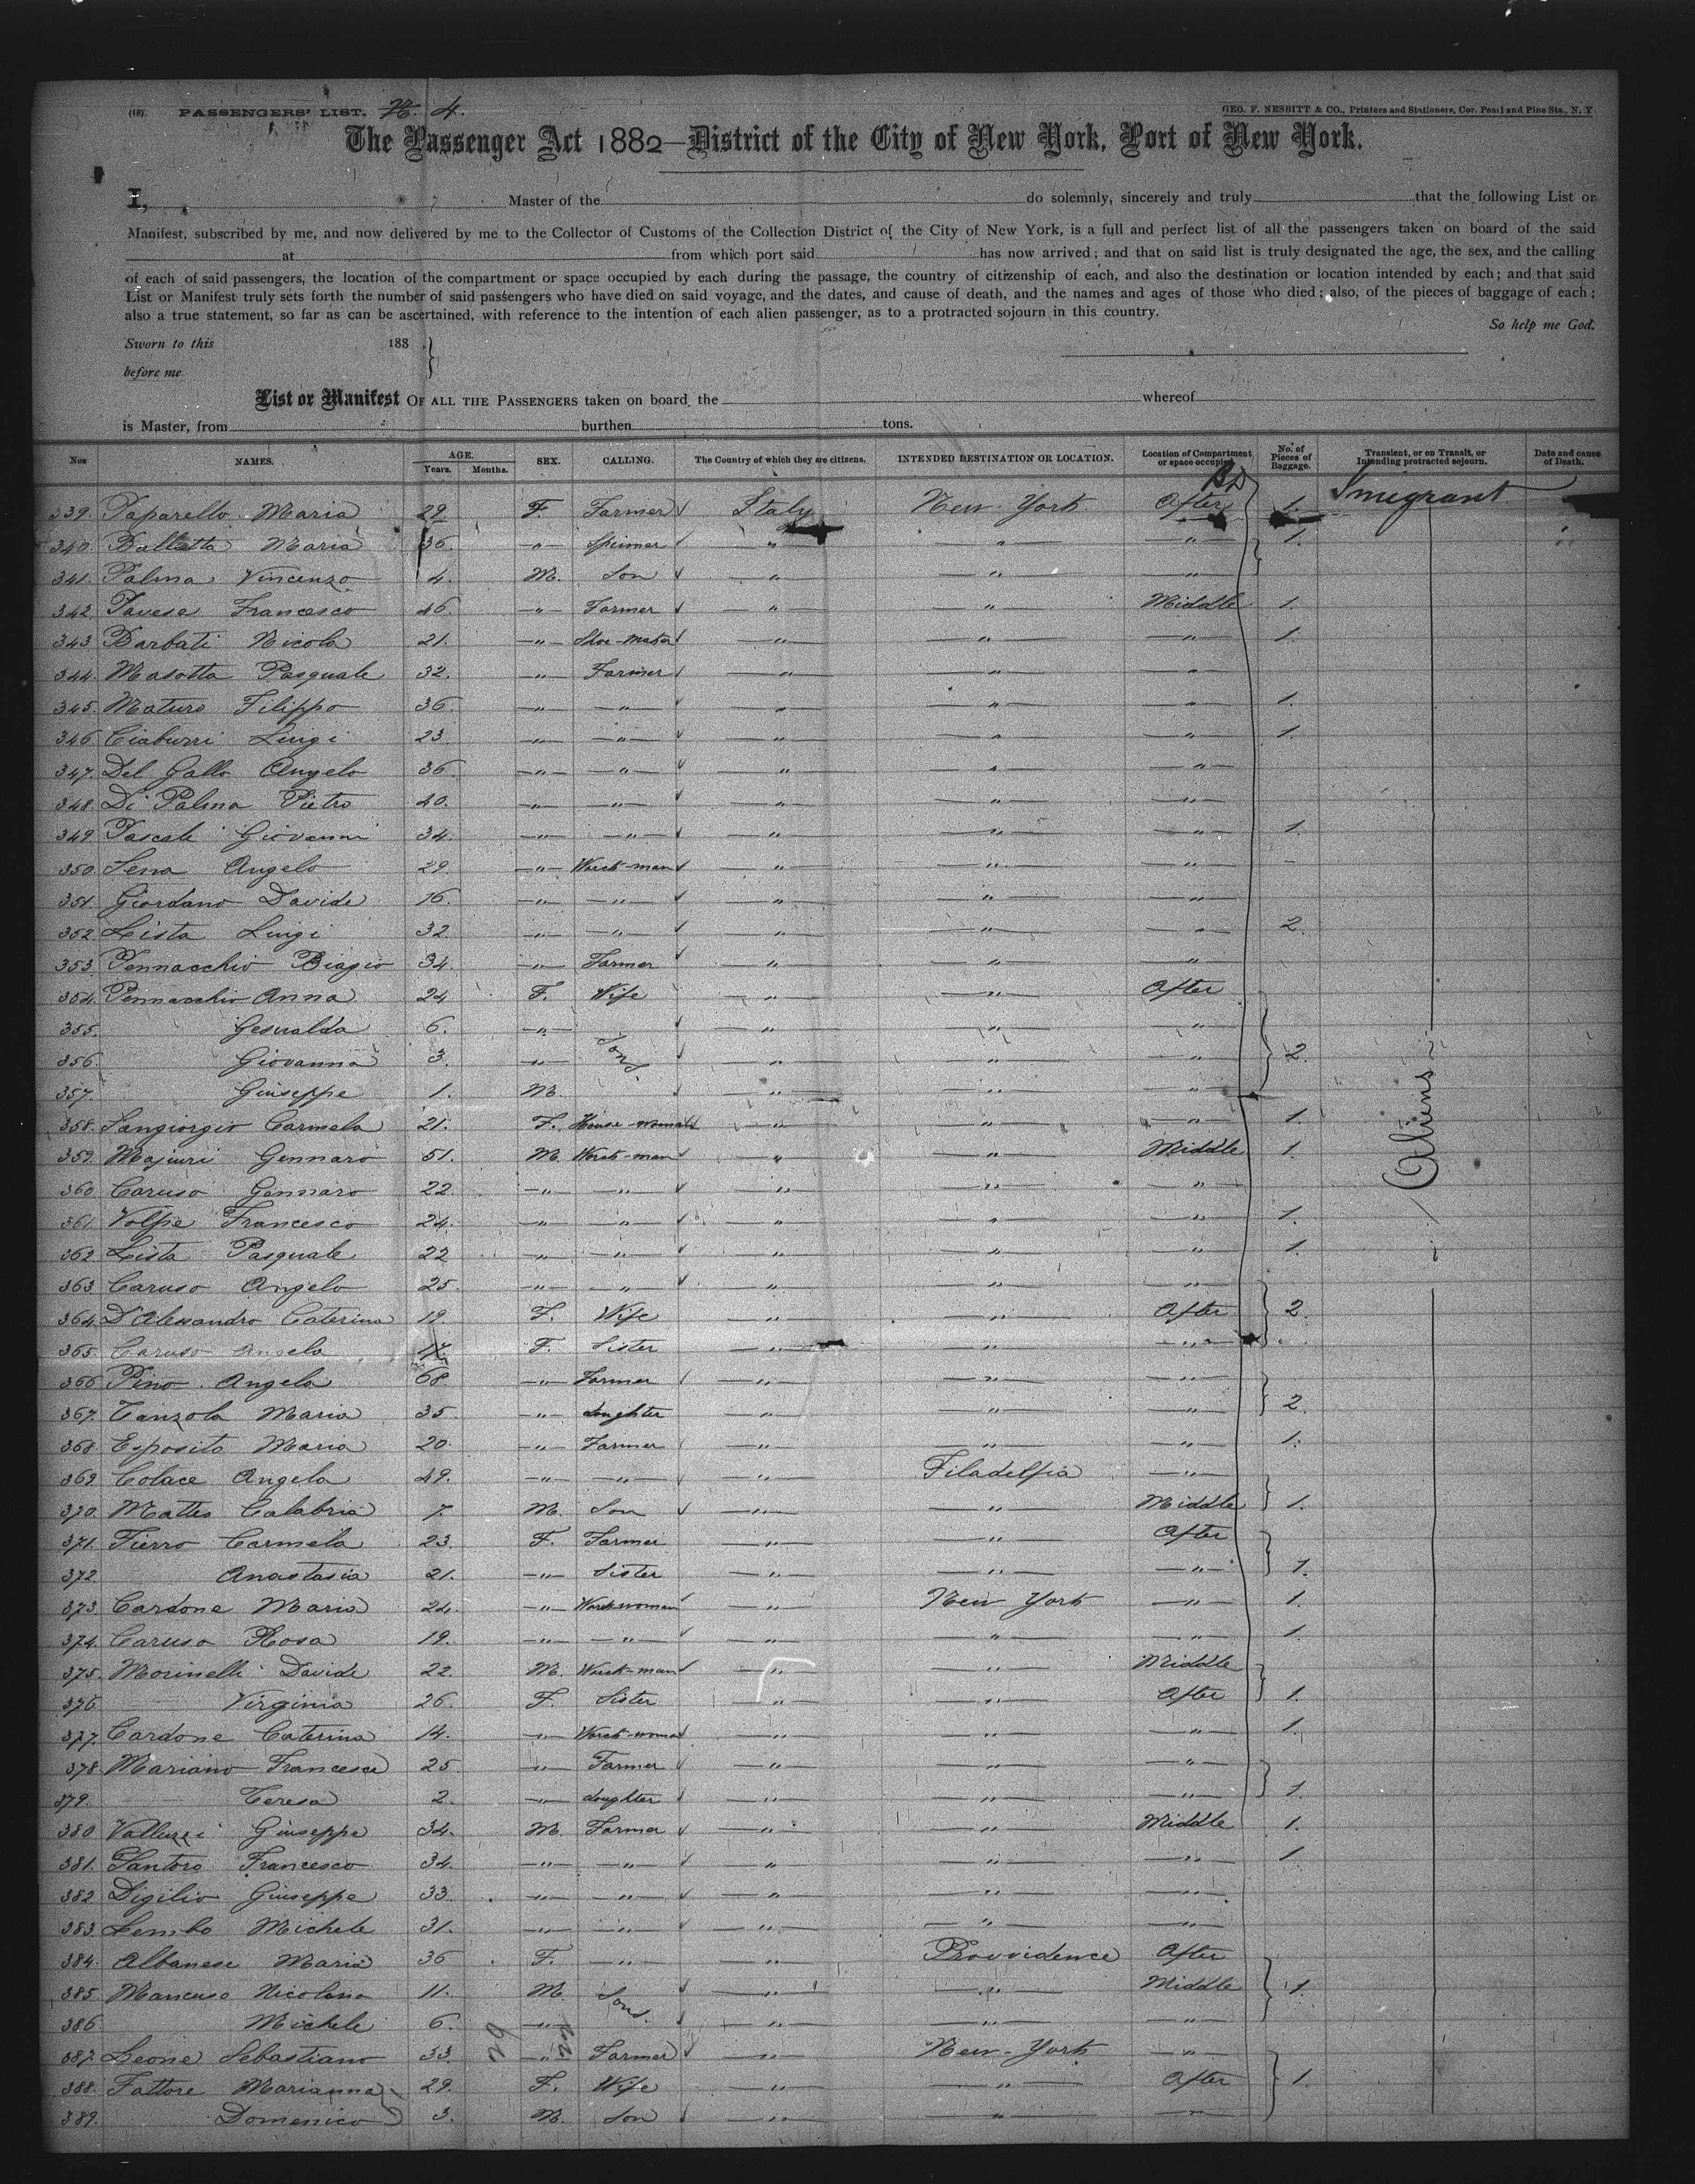 (18). PASSENGERS' LIST. 4.
GEO. F. NESBITT & CO., Printers and Stationers, Cor. Pearl and Pine Sts., N. Y.
The Passenger Act 1882—District of the City of New York, Port of New York.
I, Master of the do solemnly, sincerely and truly that the following List or
Manifest, subscribed by me, and now delivered by me to the Collector of Customs of the Collection District of the City of New York, is a full and perfect list of all the passengers taken on board of the said
at from which port said has now arrived; and that on said list is truly designated the age, the sex, and the calling
of each of said passengers, the location of the compartment or space occupied by each during the passage, the country of citizenship of each, and also the destination or location intended by each; and that said
List or Manifest truly sets forth the number of said passengers who have died on said voyage, and the dates, and cause of death, and the names and ages of those who died; also, of the pieces of baggage of each;
also a true statement, so far as can be ascertained, with reference to the intention of each alien passenger, as to a protracted sojourn in this country.
So help me God.
Sworn to this 188
before me
List or Manifest OF ALL THE PASSENGERS taken on board the whereof
is Master, from burthen tons.
Nos NAMES. AGE. Years. Months. SEX. CALLING. The Country of which they are citizens. INTENDED DESTINATION OR LOCATION. Location of Compartment or space occupied. No. of Pieces of Baggage. Transient, or on Transit, or Intending protracted sojourn. Date and cause of Death.
339. Paparello Maria 29 F. Farmer Italy New York After 1. Imigrant
340. Balletta Maria 36. " Spinner " " " 1.
341. Palma Vincenzo 4. M. Son " " "
342. Pavese Francesco 46. " Farmer " " Middle 1.
343. Barbati Nicola 21. " Shoe-maker " " " 1.
344. Masotta Pasquale 32. " Farmer " " "
345. Maturo Filippo 36. " " " " " 1.
346. Ciaburri Luigi 23. " " " " " 1.
347. Del Gallo Angelo 36. " " " " "
348. Di Palma Pietro 40. " " " " "
349. Pascale Giovanni 34. " " " " " 1.
350. Sena Angelo 29. " Work-man " " "
351. Giordano Davide 16. " " " " "
352. Lista Luigi 32. " " " " " 2.
353. Pennacchio Biagio 34. " Farmer " " "
354. Pennacchio Anna 24 F. Wife " " After
355. Gesualda 6. " " " "
356. Giovanna 3. " Sons " " " 2.
357. Giuseppe 1. M. " " "
358. Sangiorgio Carmela 21. F. House-woman " " " 1.
359. Majuri Gennaro 51. M. Work-man " " Middle 1.
360 Caruso Gennaro 22. " " " " "
361. Volpe Francesco 24. " " " " " 1.
362. Lista Pasquale 22 " " " " " 1.
363 Caruso Angelo 25. " " " " "
364. D'Alessandro Caterina 19. F. Wife " " After 2.
365. Caruso Angela F. Sister " " "
366 Pino Angela 68 " Farmer " " "
367. Tanzola Maria 35. " daughter " " " 2.
368. Esposito Maria 20. " Farmer " " " 1.
369 Colace Angela 49. " " " Filadelfia "
370. Matteo Calabria 7. M. Son " " Middle 1.
371. Fierro Carmela 23. F. Farmer " " After
372 Anastasia 21. " Sister " " " 1.
373. Cardone Maria 24. " Work-woman " New York " 1.
374. Caruso Rosa 19. " " " " " 1.
375. Morinelli Davide 22. M. Work-man " " Middle
376. Virginia 26. F. Sister " " After 1.
377. Cardone Caterina 14. " Work-woman " " " 1.
378. Mariano Francesca 25 " Farmer " " "
379. Teresa 2. " daughter " " " 1.
380 Valluzzi Giuseppe 34. M. Farmer " " Middle 1.
381. Santoro Francesco 34. " " " " " 1
382 Digilio Giuseppe 33. " " " " "
383. Lembo Michele 31. " " " " "
384. Albanese Maria 36 F. " " Providence After
385. Mancuso Nicolana 11. M. Sons " " Middle 1.
386 Michele 6. " " " "
387. Leone Sebastiano 33. " Farmer " New-York "
388. Fattore Marianna 29. F. Wife " " After 1.
389. Domenico 3. M. Son " " "
Aliens